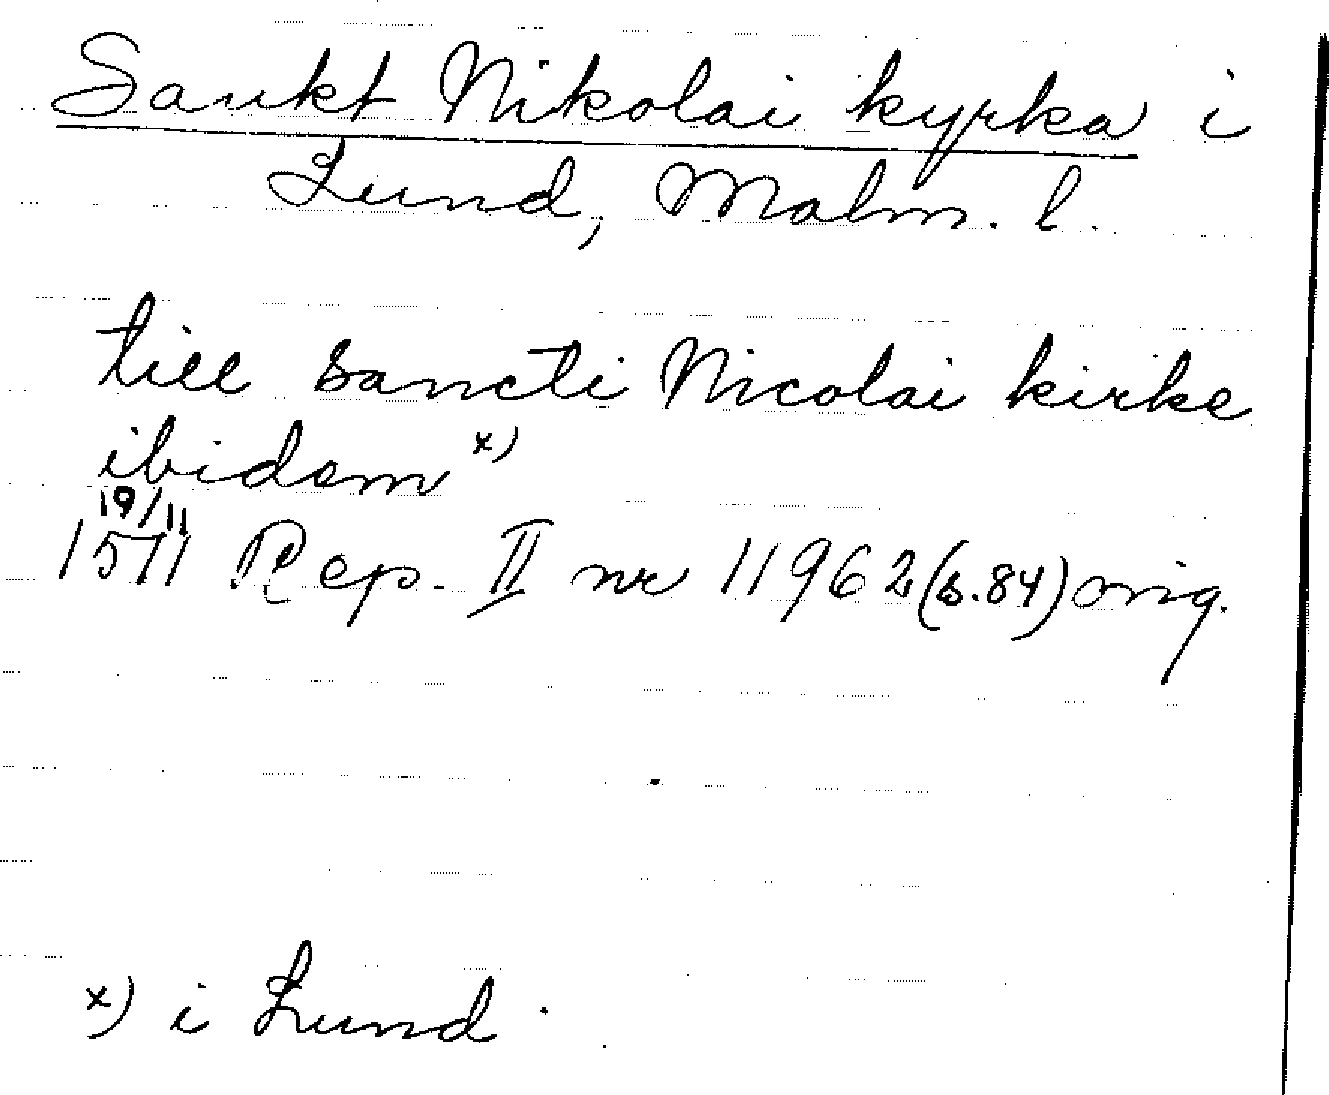 Sankt Nikolai kyrka i
Lund, Malm. l.
till sancti Nicolai kirke
ibidem x)
19/11
1571 Rep. II nr 11962 (s.84) orig.
x) i Lund.